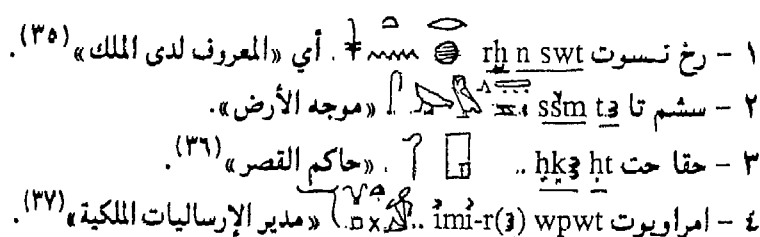 ١ - رخ نـسوت rḫ n swt . أي «المعروف لدى الملك» (٣٥).
٢ - سشم تا sšm tꜣ «موجه الأرض».
٣ - حقا حت ḥḳꜣ ḥt .. «حاكم القصر» (٣٦).
٤ - امراوبوت imi-r(ꜣ) wpwt .. «مدير الإرساليات الملكية» (٣٧).